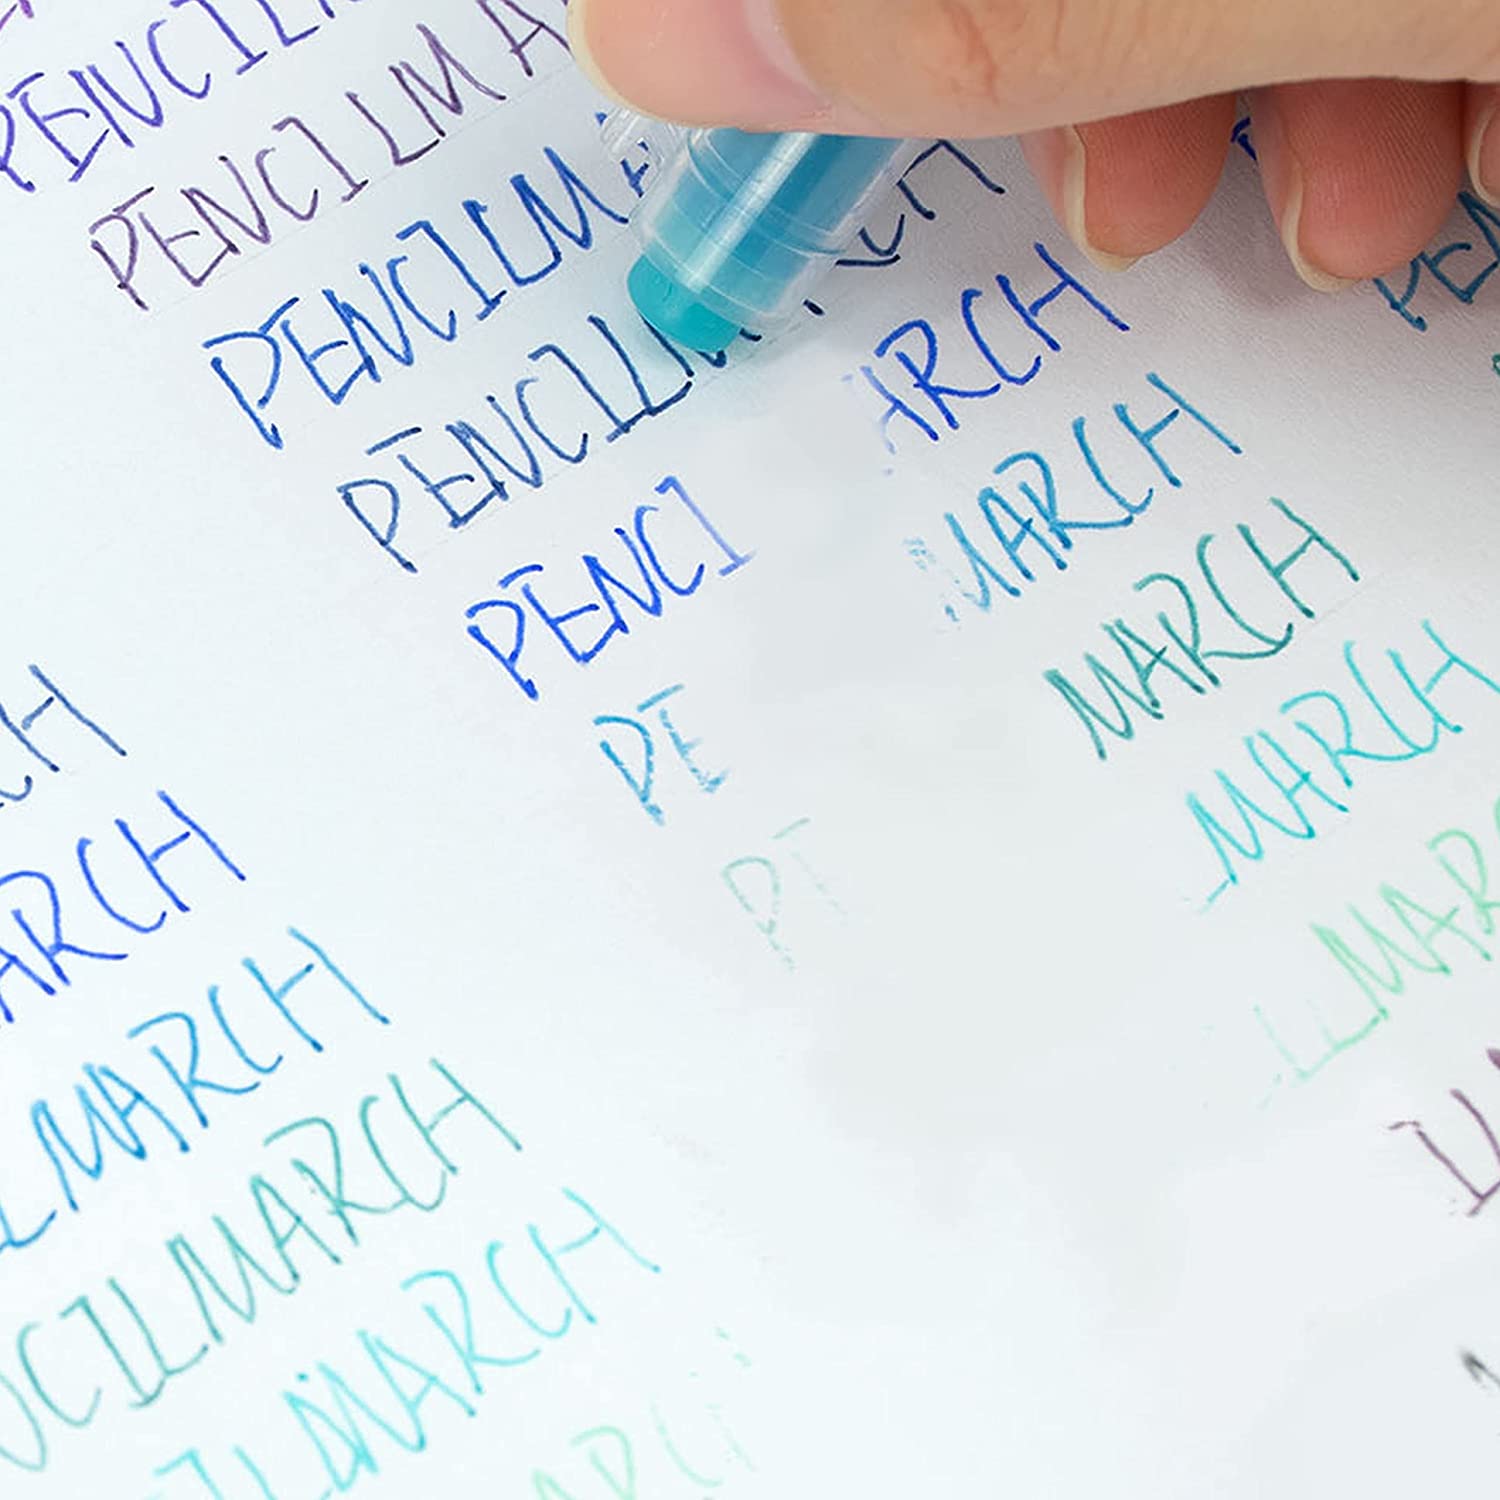 PENCIL
PENCILMA
PENCILMA
PENCILM CH
PENCI ARCH
PE MARCH
P MARCH
MARCH
LMAR
PEN
IL
CH
ARCH
LMARCH
NCILMARCH
ILMARCH
ARC